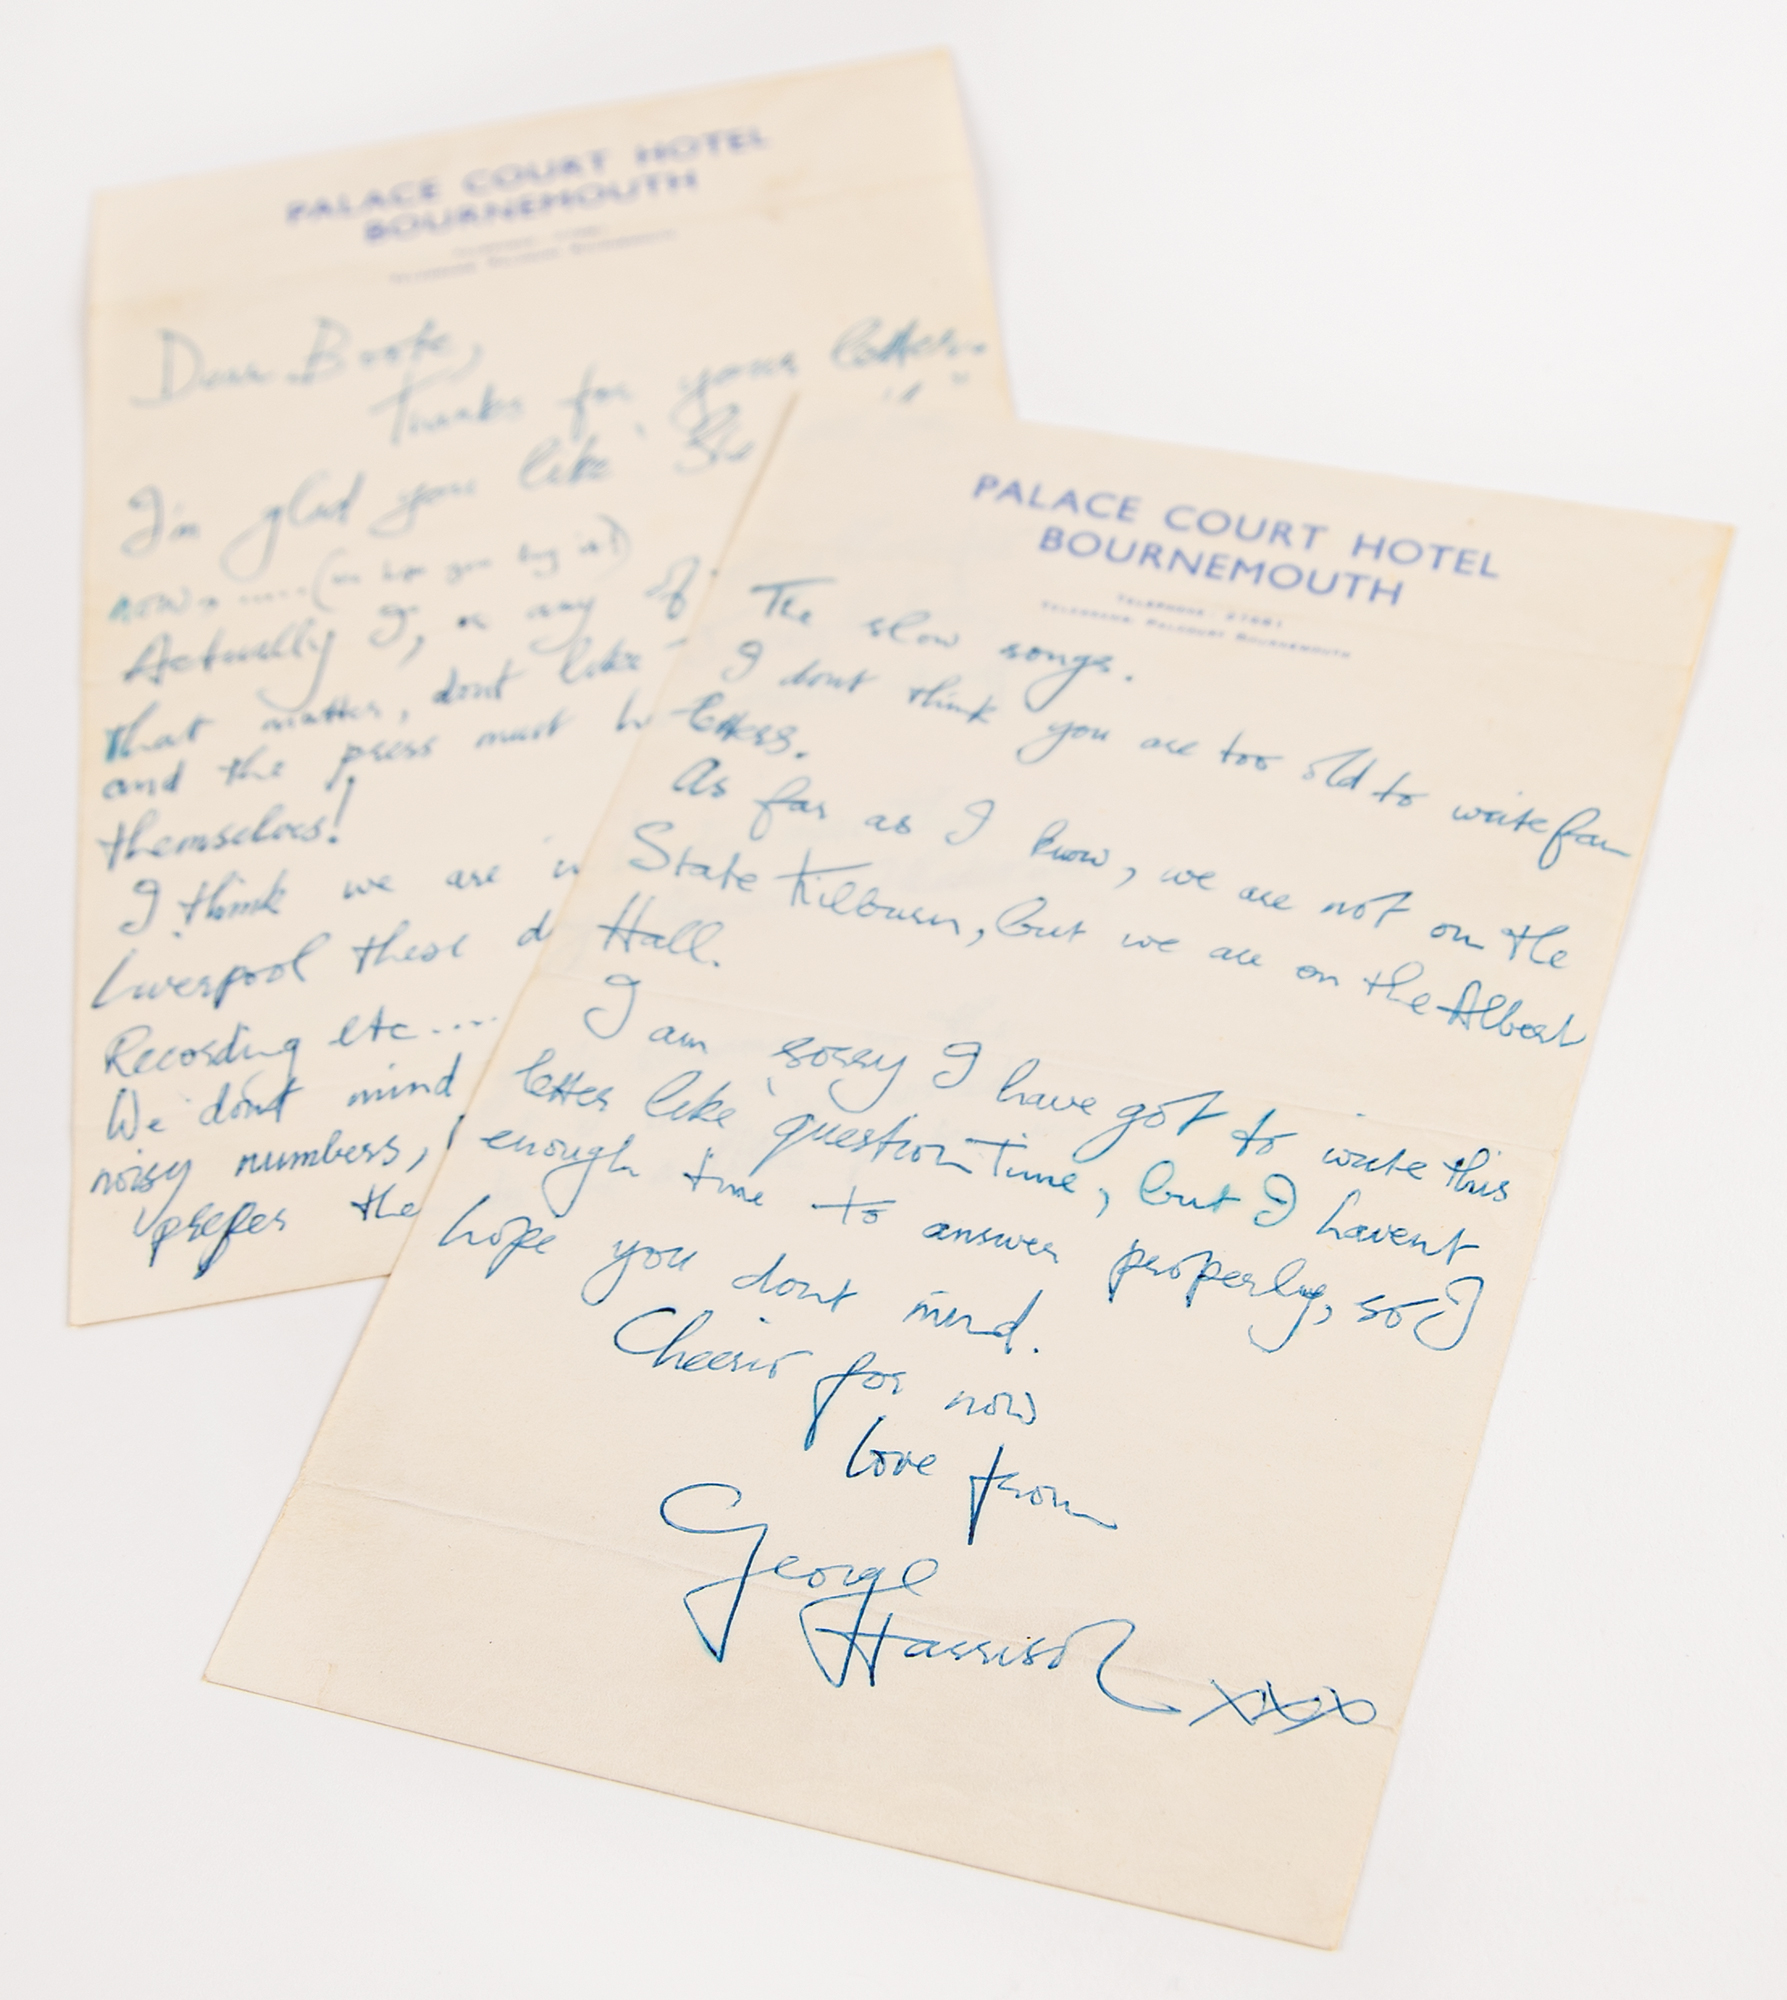 PALACE COURT HOTEL
BOURNEMOUTH
Thanks for your letter.
I'm glad you like 'She
now. .....(we hope you buy it!)
Actually I, or any of
that matter, dont like
and the press must
themselves!
I think we are in
Liverpool these
Recording etc....
We dont mind
noisy numbers,
prefer the
PALACE COURT HOTEL
BOURNEMOUTH
TELEPHONE
TELEGRAMS: PALCOURT BOURNEMOUTH
The slow songs.
I dont think you are too old to write fan
letters.
As far as I know, we are not on the
State Kilburn, but we are on the Albert
Hall.
I am sorry I have got to write this
letter like 'question Time, but I havent
enough time to answer properly, so I
hope you dont mind.
Cheerio for now
love from
George
Harrison xxx